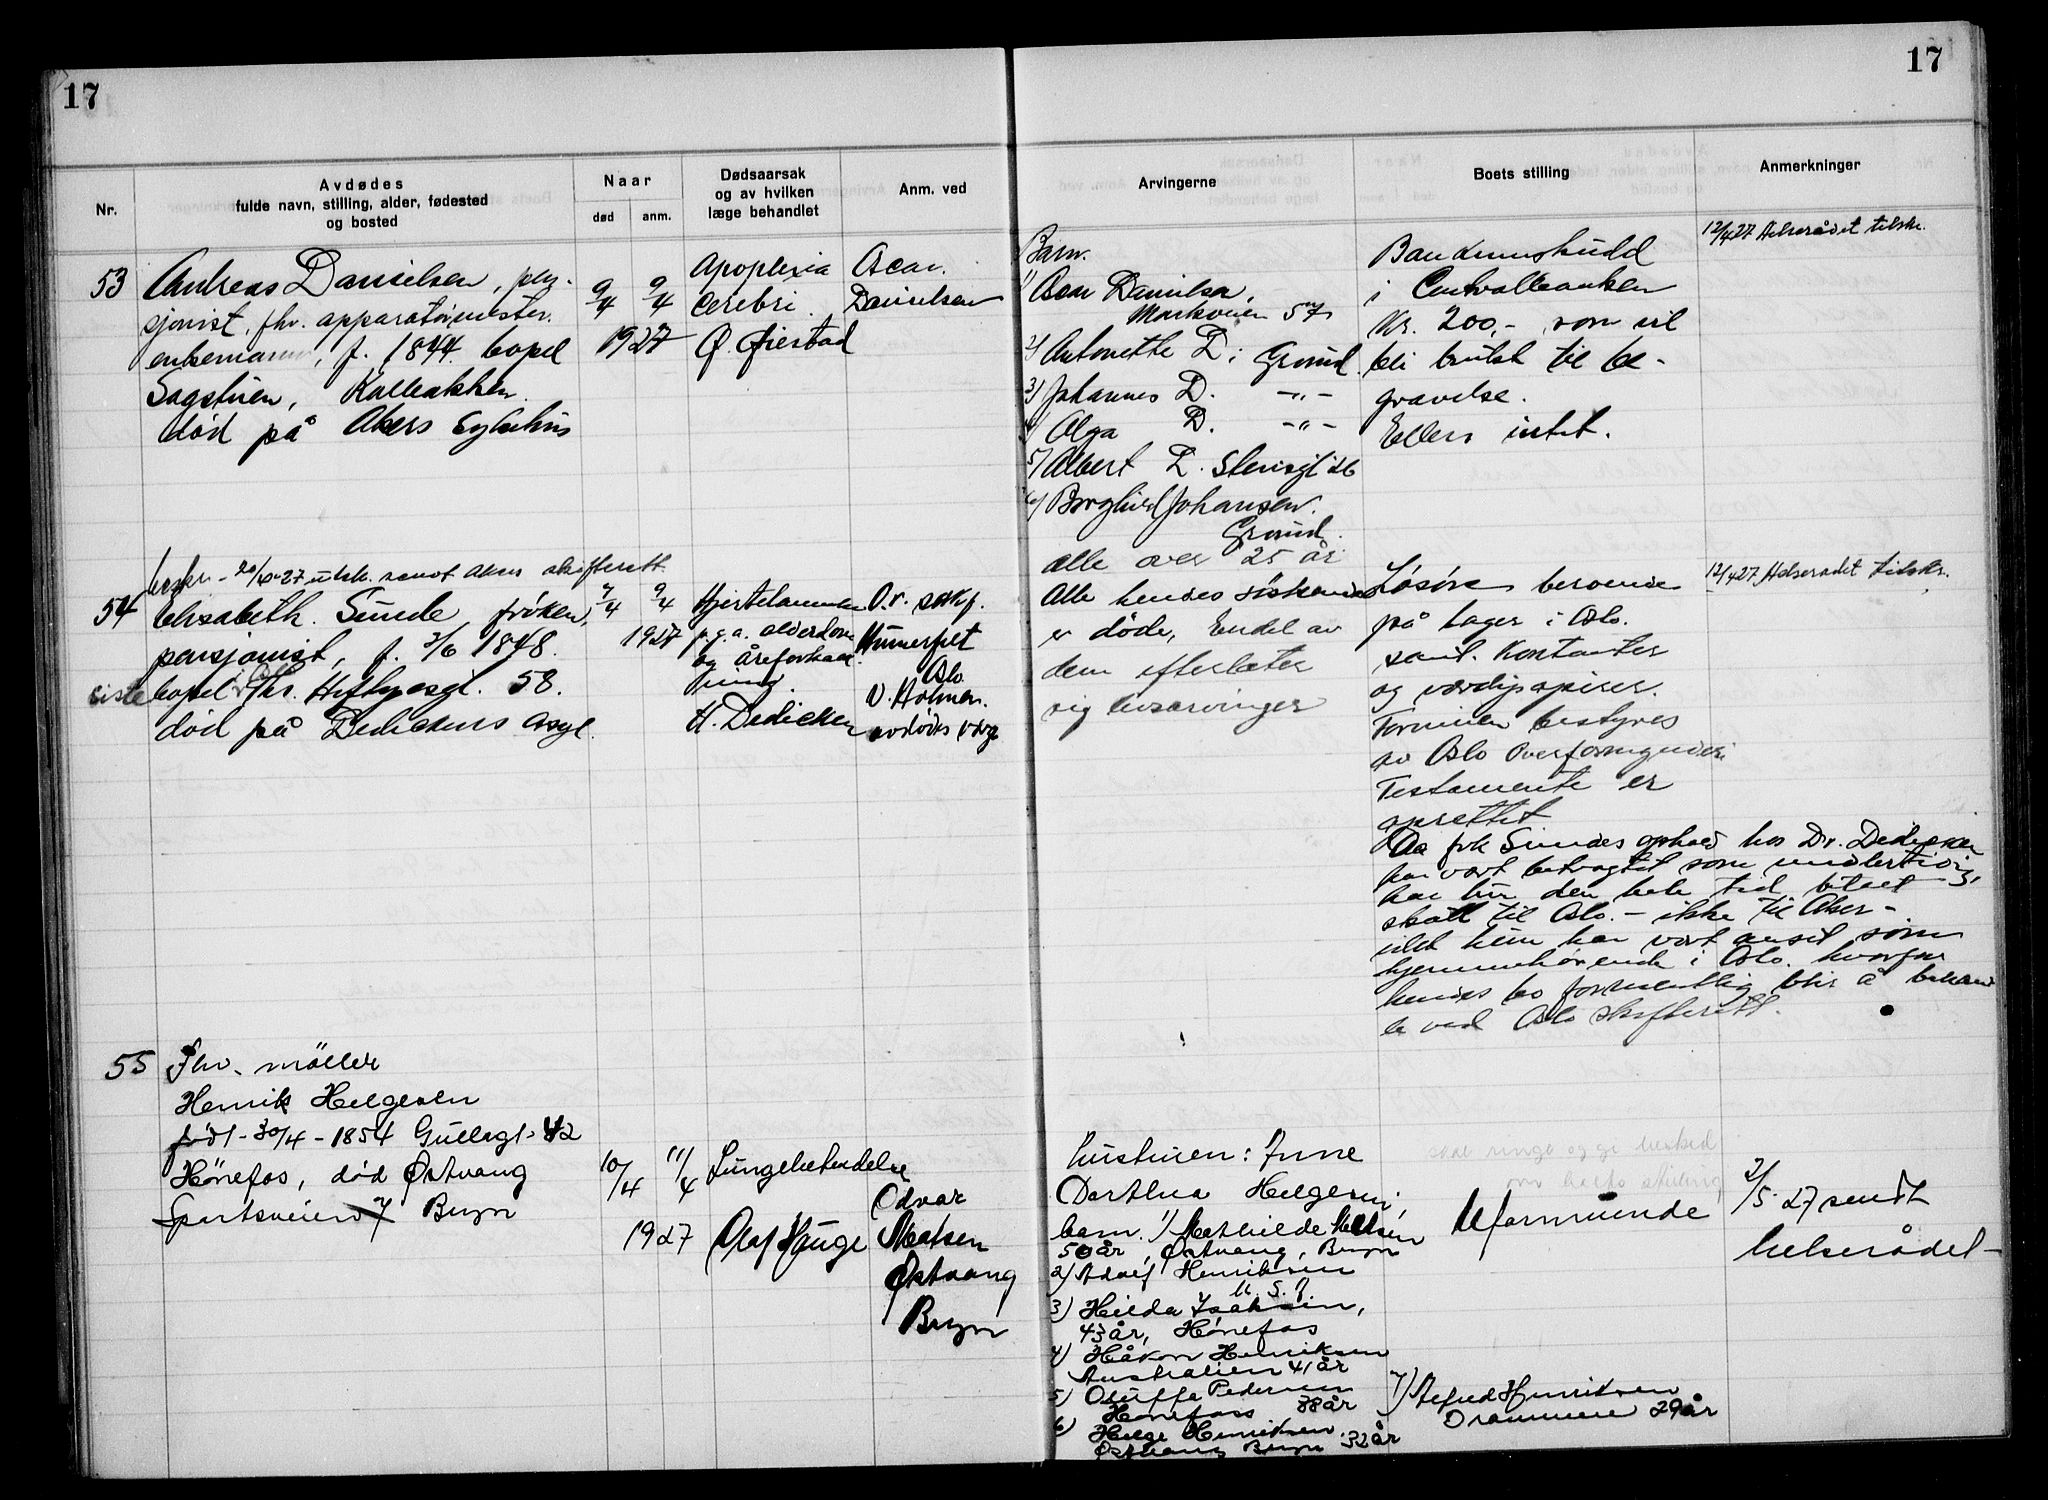 17
17
Nr.
Avdødes
fulde navn, stilling, alder, fødested
og bosted
Naar
død
anm.
Dødsaarsak
og av hvilken
læge behandlet
Anm. ved
Arvingerne
Boets stilling
Anmerkninger
53
Andreas Danielsen, pen-
sjonist, fhv. apparatørmester.
enkemann, f. 1844. bopel
Sagstuen, Kalbakken.
død på Akers Sykehus
9/4 9/4
1927
Apoplexia
cerebri.
Ø. Øiestad
Oscar
Danielsen
Barn.
1/ Oscar Danielsen,
Markveien 57
2/ Antonette D. Grorud.
3) Johannes D. -"-
4/ Olga D. -"-
5/ Albert D.
6/ Borghild Johansen.
Grorud.
alle over 25 år.
Bankinnskudd
i Centralbanken
Kr. 200,- som vil
bli brukt til be-
gravelse.
Ellers intet.
12/4 27 Helserådet tilskr.
27 utsk. sendt Aker skifterett.
54
Elisabeth Sunde frøken,
pensjonist, f. 3/6 1848.
siste bopel Thv. Heftyesgt. 58.
død på Dedichens asyl.
7/4 9/4
1927
Hjertelammelse
p.g.a. alderdom
og åreforkalk-
ning.
H. Dedichen
O.r. sakf.
Hunerfelt
Oslo
V. Holmen.
avdødes verge
Alle hendes søskende
er døde, Endel av
dem efterlater
sig livsarvinger
Løsøre beroende
på lager i Oslo.
samt. Kontanter
og værdipapirer.
Formuen bestyres
av Oslo Overformynderi
Testamente er
oprettet
Da frk Sundes ophold hos Dr. Dedichen
har vært betragtet som midlertidig,
har hun den hele tid betalt
skatt til Oslo. - ikke til Aker -
idet hun har vært anset som
hjemmehørende i Oslo. hvorfor
hendes bo formentlig blir å behand
le ved Oslo skifterett.
12/4 27 Helserådet tilskr.
55
Fhv. møller
Henrik Helgesen
født - 30/4 - 1854 Gullagt. 42
Hønefos, død Østvang
Sportsveien 7 Bryn
10/4 11/4
1927
Lungebetendelse
Olaf Hauge
Odvar
Madsen
Østvang
Bryn
hustruen:
Dorthea Helgesen.
barn. 1) Mathilde Madsen
50 år, Østvang, Bryn
2) Adolf Henriksen
U. S. A.
3) Hilda Isaksen,
43 år, Hønefos
4) Håkon Henriksen
Australien 41 år
5) Oluffe Pedersen
Hønefoss 38 år
6) Helge Henriksen.
Østvang Bryn 32 år
7) Alfred Henriksen
Drammen 29 år
skal ringe og gi beskjed
om boets stilling
Uformuende
2/5-27 sendt
helserådet -